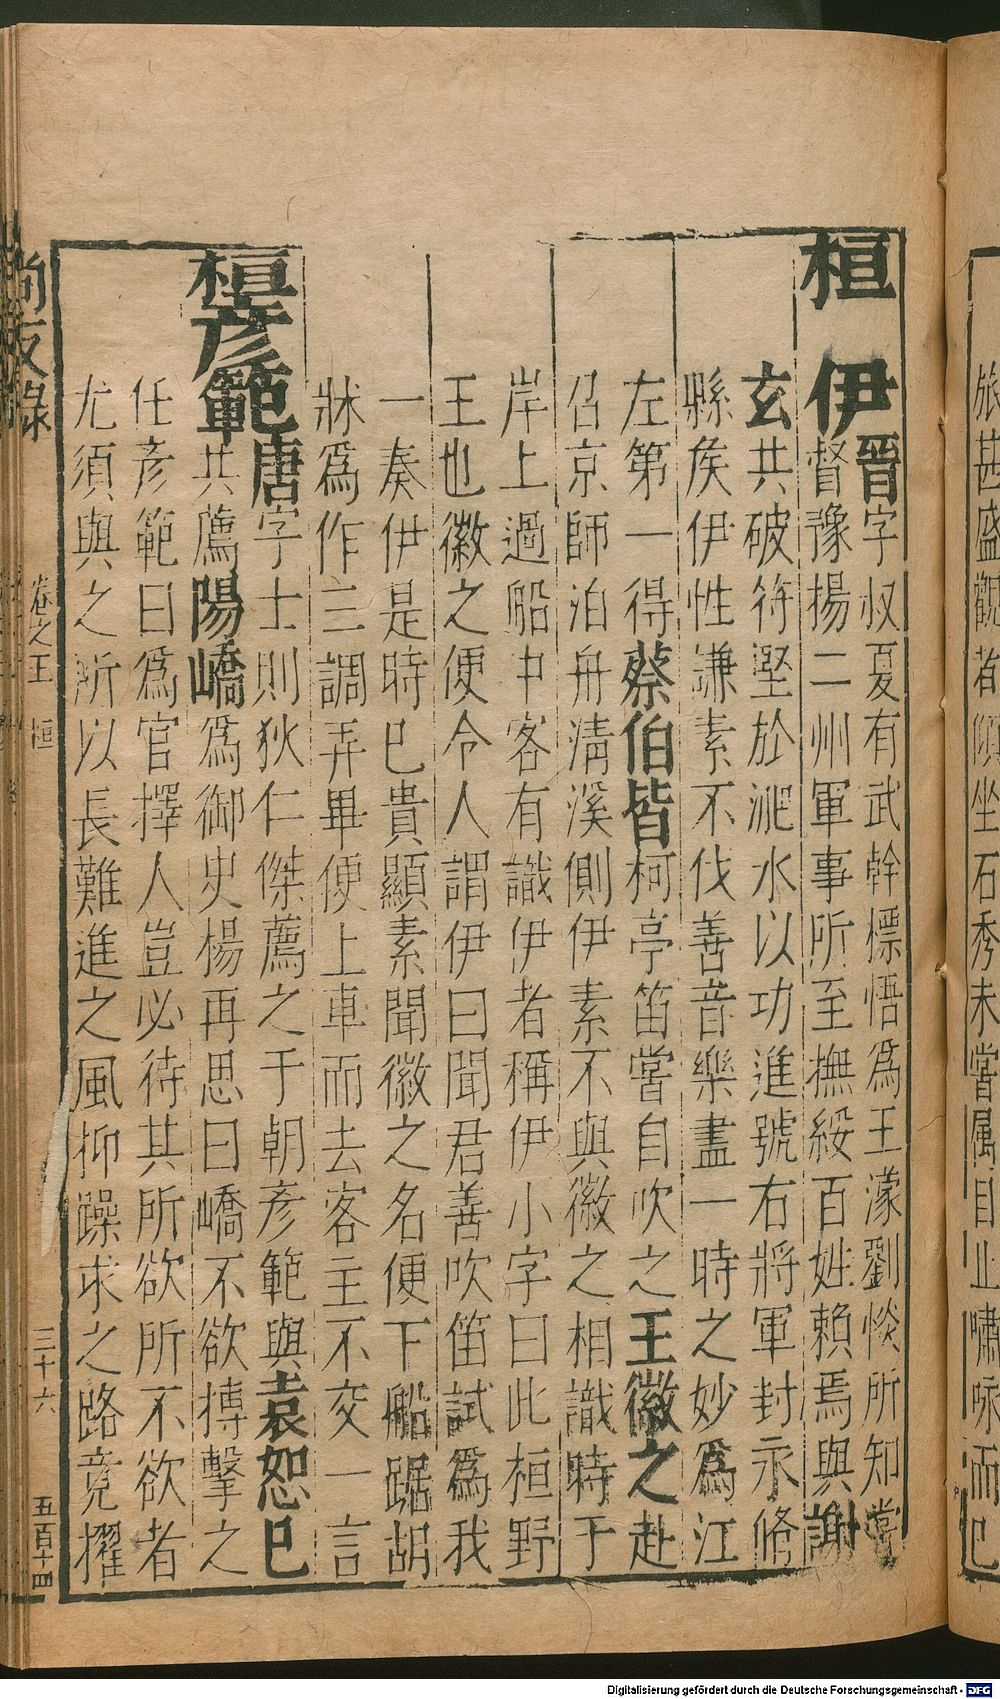 旅甚盛觀者傾坐石秀未嘗属目止嘯咏而已
桓伊晉字叔夏有武幹標悟爲王濛劉惔所知嘗
督豫揚二州軍事所至撫綏百姓賴焉與謝
玄共破符堅於淝水以功進號右將軍封永脩
縣侯伊性謙素不伐善音樂盡一時之妙爲江
左第一得蔡伯皆柯亭笛嘗自吹之王徽之赴
召京師泊舟淸溪側伊素不與徽之相識時于
岸上過船中客有識伊者稱伊小字曰此桓野
王也徽之便令人謂伊曰聞君善吹笛試爲我
一奏伊是時已貴顯素聞徽之名便下船踞胡
牀爲作三調弄畢便上車而去客主不交一言
桓彥範唐字士則狄仁傑薦之于朝彥範與袁恕已
共薦陽嶠爲御史楊再思曰嶠不欲搏擊之
任彥範曰爲官擇人豈必待其所欲所不欲者
尤須與之所以長難進之風抑躁求之路竟擢
尚友錄 卷之五 桓 三十六 五百十四
Digitalisierung gefördert durch die Deutsche Forschungsgemeinschaft - DFG